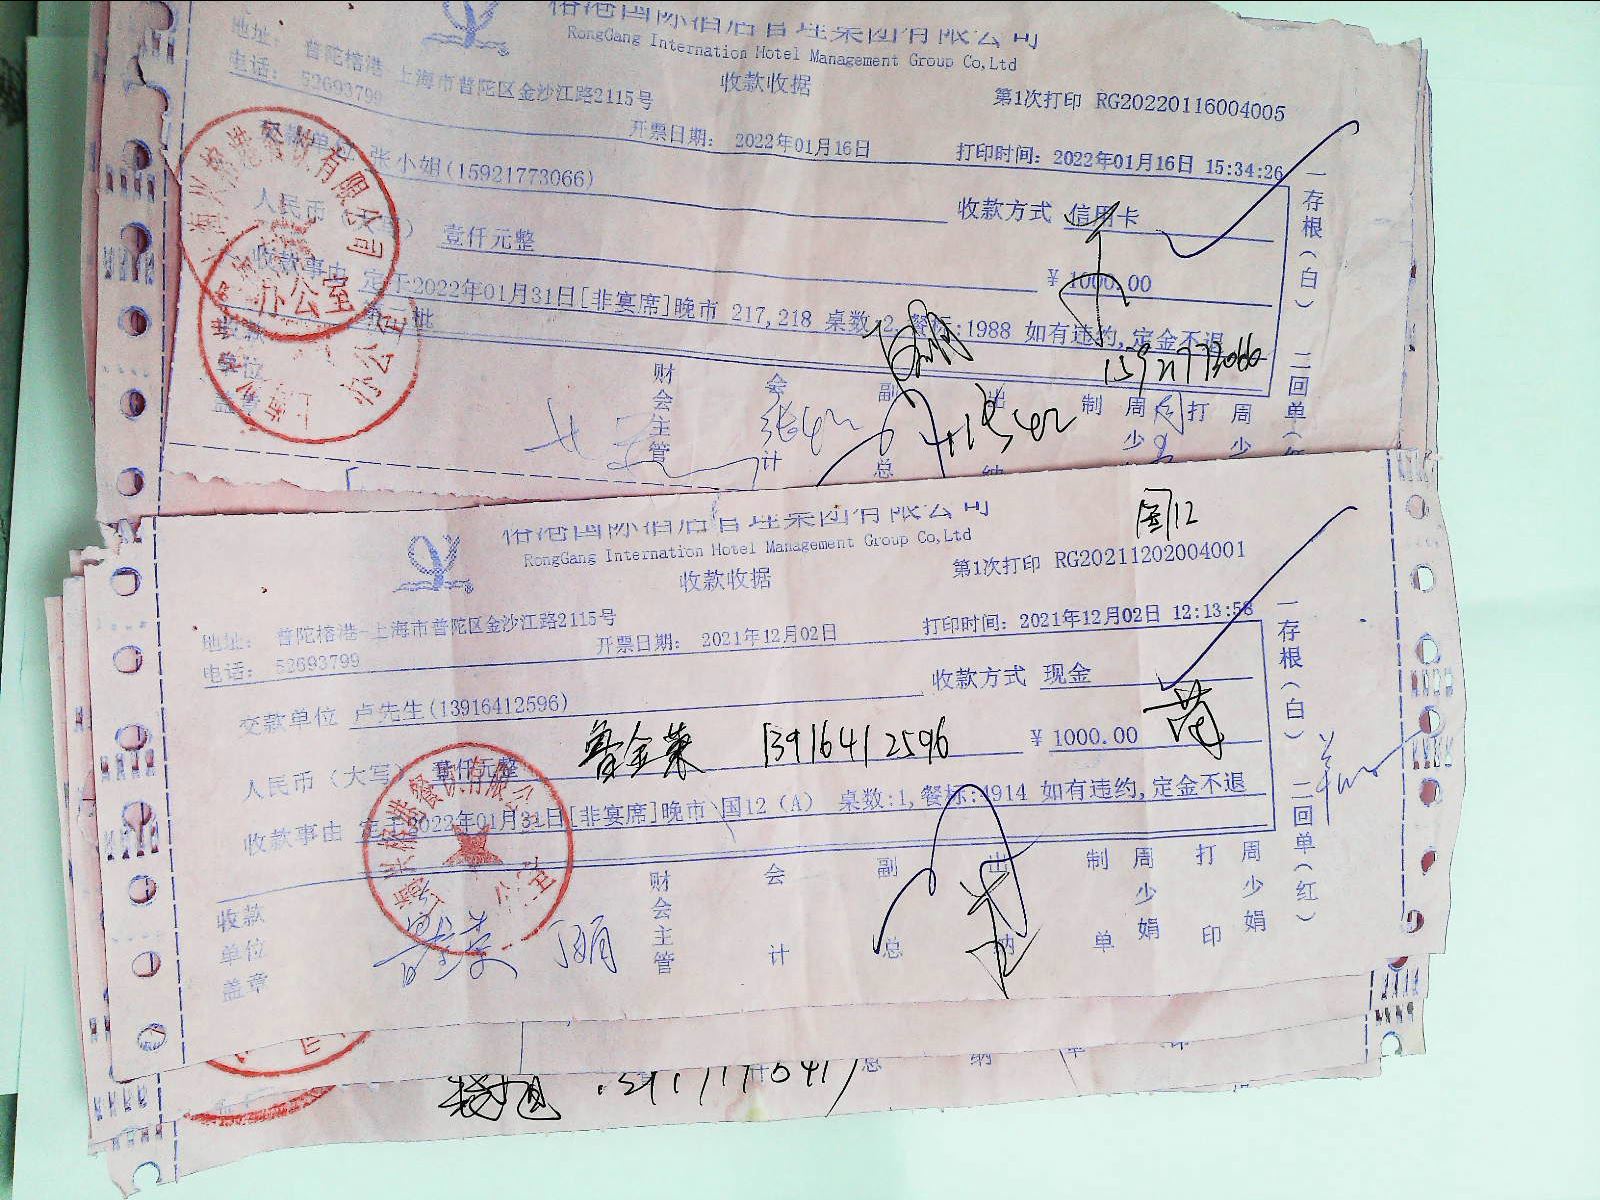 榕港国际酒店管理集团有限公司
RongGang Internation Hotel Management Group Co,Ltd
收款收据
第1次打印 RG20220116004005
地址： 普陀榕港 上海市普陀区金沙江路2115号
电话： 52693799
开票日期： 2022年01月16日
打印时间：2022年01月16日 15:34:26
交款单位 张小娟(15921773066)
收款方式 信用卡
人民币（大写） 壹仟元整
￥1000.00
收款事由 定于2022年01月31日[非宴席]晚市 217,218 桌数:2,餐标:1988 如有违约,定金不退
第一批
15921773066
收款单位盖章
财会主管
会计
副总
出纳
制 周少
打 周少
一存根（白） 二回单（红
办公室
榕港国际酒店管理集团有限公司
RongGang Internation Hotel Management Group Co,Ltd
收款收据
国12
第1次打印 RG20211202004001
地址： 普陀榕港-上海市普陀区金沙江路2115号
电话： 52693799
开票日期： 2021年12月02日
打印时间：2021年12月02日 12:13:58
交款单位 卢先生(13916412596)
收款方式 现金
鲁金荣 13916412596
人民币（大写） 壹仟元整
￥1000.00
收款事由 定于2022年01月31日[非宴席]晚市 国12（A） 桌数:1,餐标:4914 如有违约,定金不退
收款单位盖章
财会主管
会计
副总
出纳
制单 周少娟
打印 周少娟
一存根（白） 二回单（红）